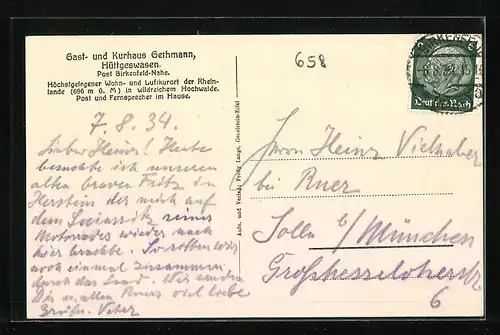 Gast- und Kurhaus Gethmann,
Hüttgeswasen.
Post Birkenfeld-Nahe.
Höchstgelegener Wohn- und Luftkurort der Rhein-
lande (696 m ü. M.) in wildreichem Hochwalde.
Post und Fernsprecher im Hause.
658
7.8.34.
Lieber Heinz! Heute
besuchte ich unseren
alten braven Fritz in
Herstein der mich auf
dem Soziussitz seines
Motorrades wieder nach
hier brachte. So
noch einmal zusammen
durch das Land. Wir senden
Dir u. allen Ruers viel liebe
Grüße. Vater
Aufn. und Verlag: Freddy Lange, Gerolstein-Eifel
Herrn Heinz Viehhaber
bei Ruer
Solln b/ München
Großhesseloherstr
6
6
Deutsches Reich
BIRKENFELD
8.8.34.